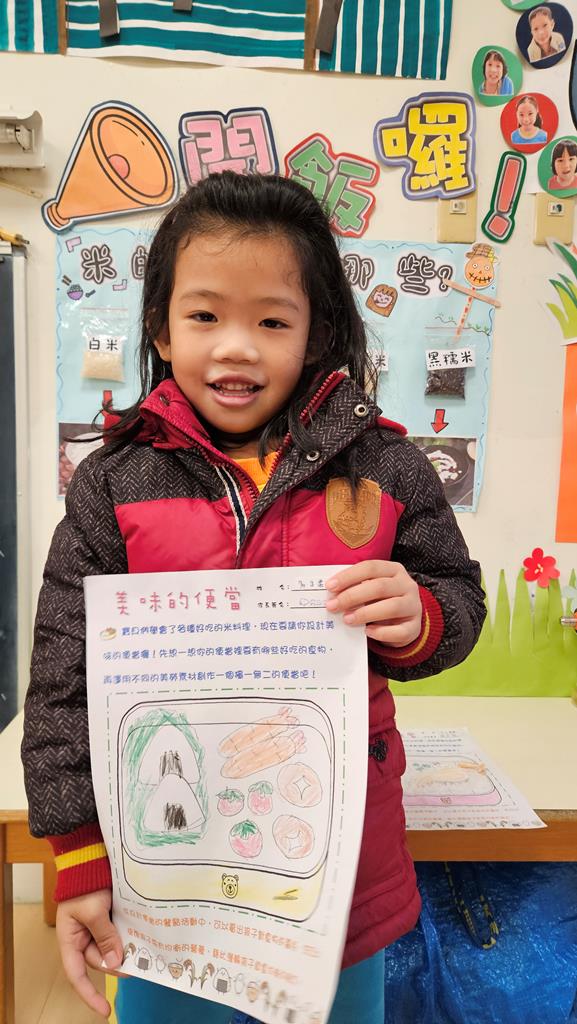 開飯囉!
米的 那些?
白米
米
黑糯米
美味的便當
姓 名:
家長簽名:
寶貝們學會了各種好吃的米料理,現在要請你設計美
味的便當囉!先想一想你的便當裡要有哪些好吃的食物,
再運用不同的美勞素材創作一個獨一無二的便當吧!
的餐點活動中,可以看出孩子對食物的喜好